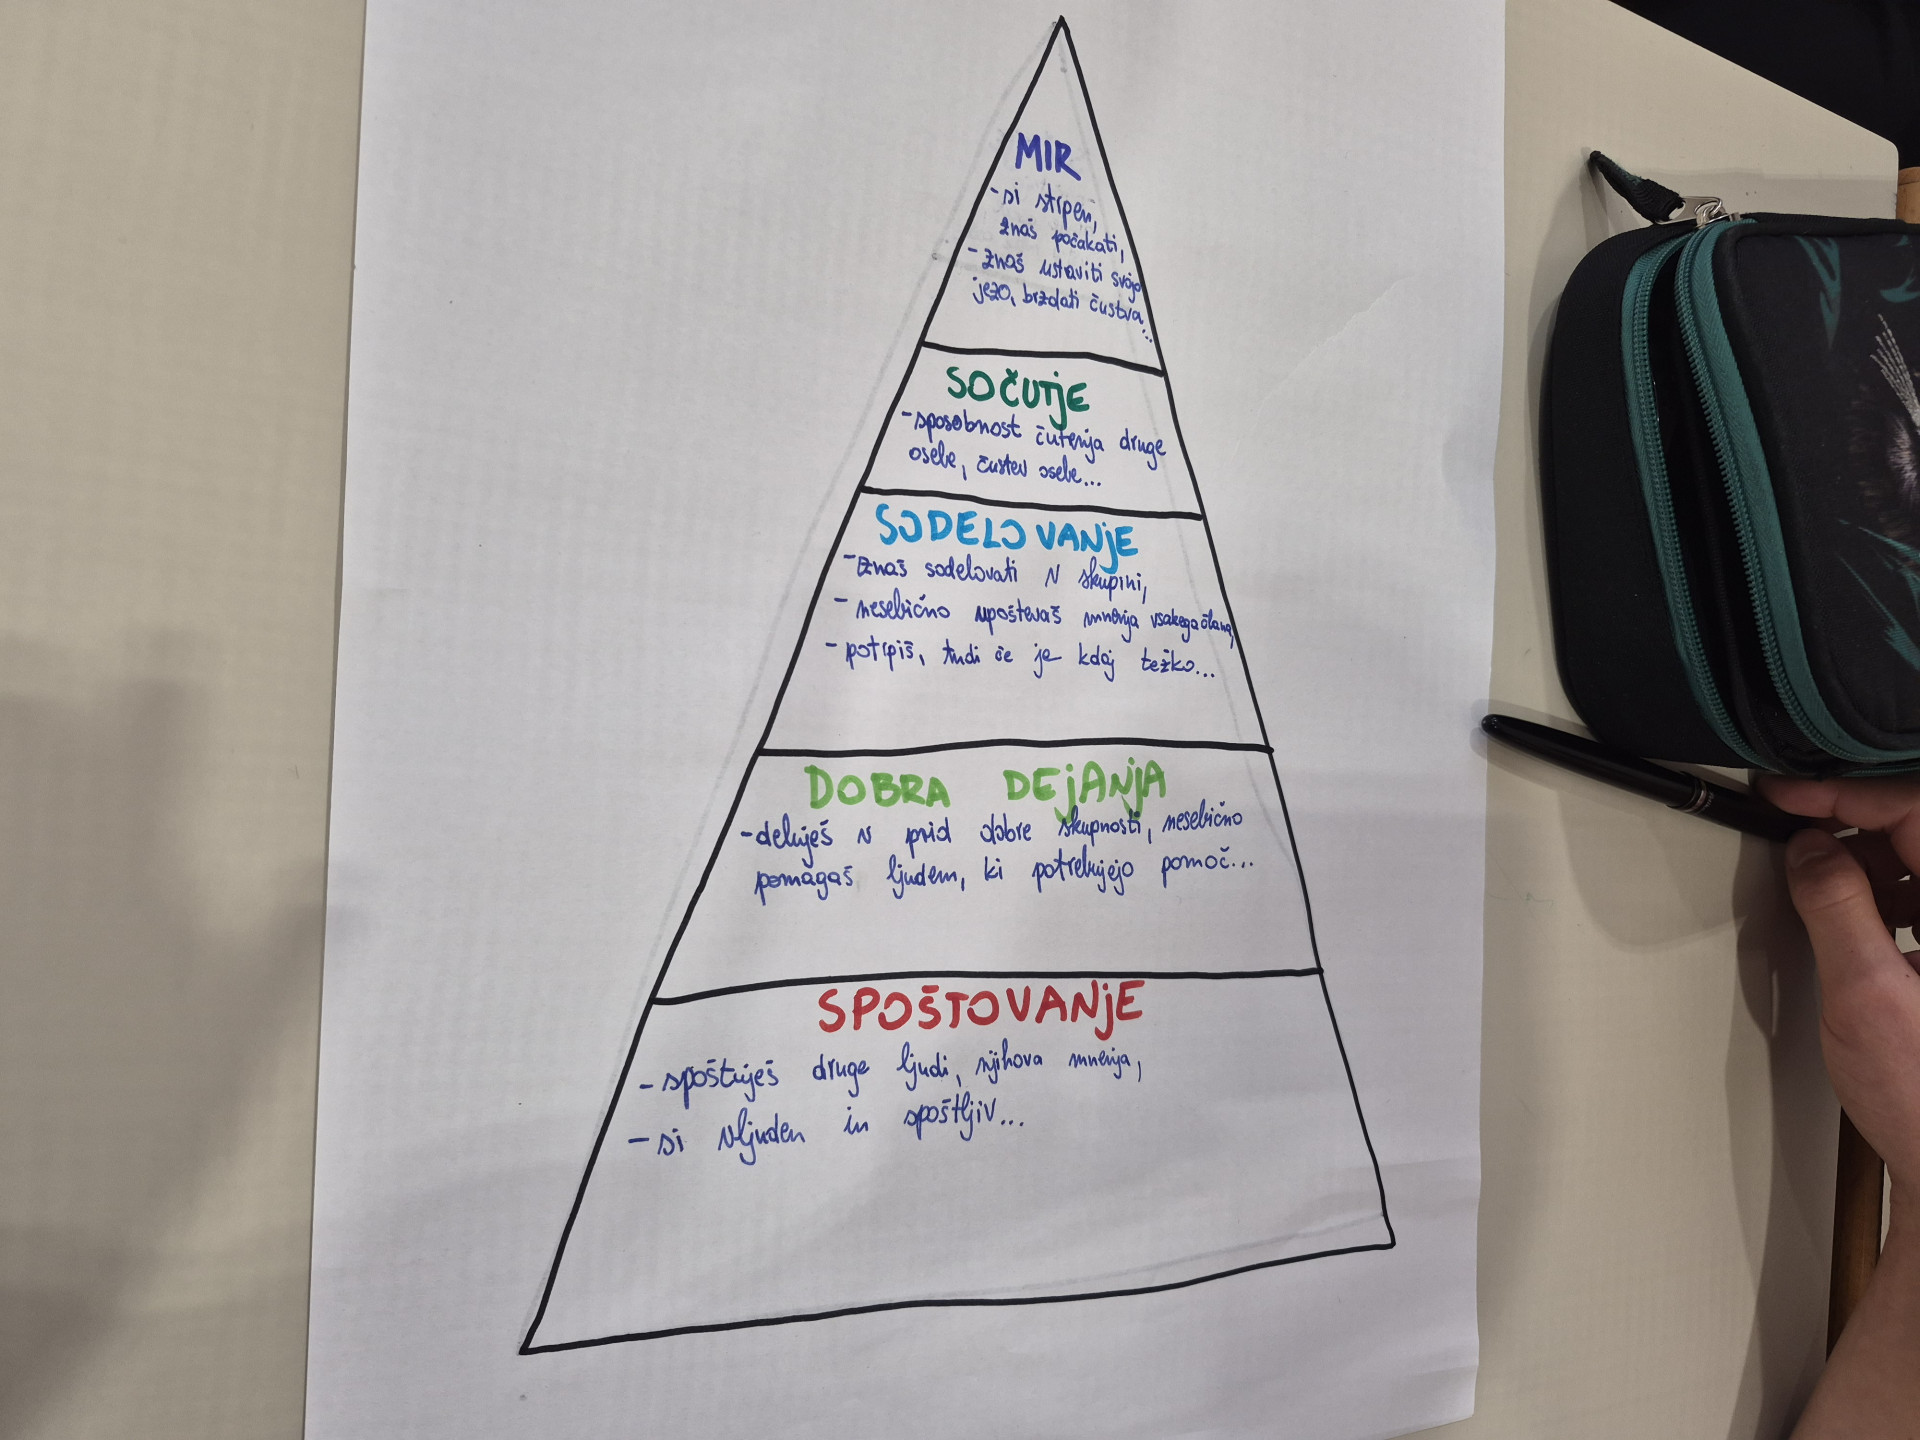 MIR
- si strpen,
znaš počakati,
- znaš ustaviti svojo
jezo, brzdati čustva...
SOČUTJE
- sposobnost čutenja druge
osebe, čustev osebe...
SODELOVANJE
- znaš sodelovati v skupini,
- nesebično upoštevaš mnenja vsakega člana,
- potrpiš, tudi če je kdaj težko...
DOBRA DEJANJA
- deluješ v prid dobre skupnosti, nesebično
pomagaš ljudem, ki potrebujejo pomoč...
SPOŠTOVANJE
- spoštuješ druge ljudi, njihova mnenja,
- si vljuden in spoštljiv...